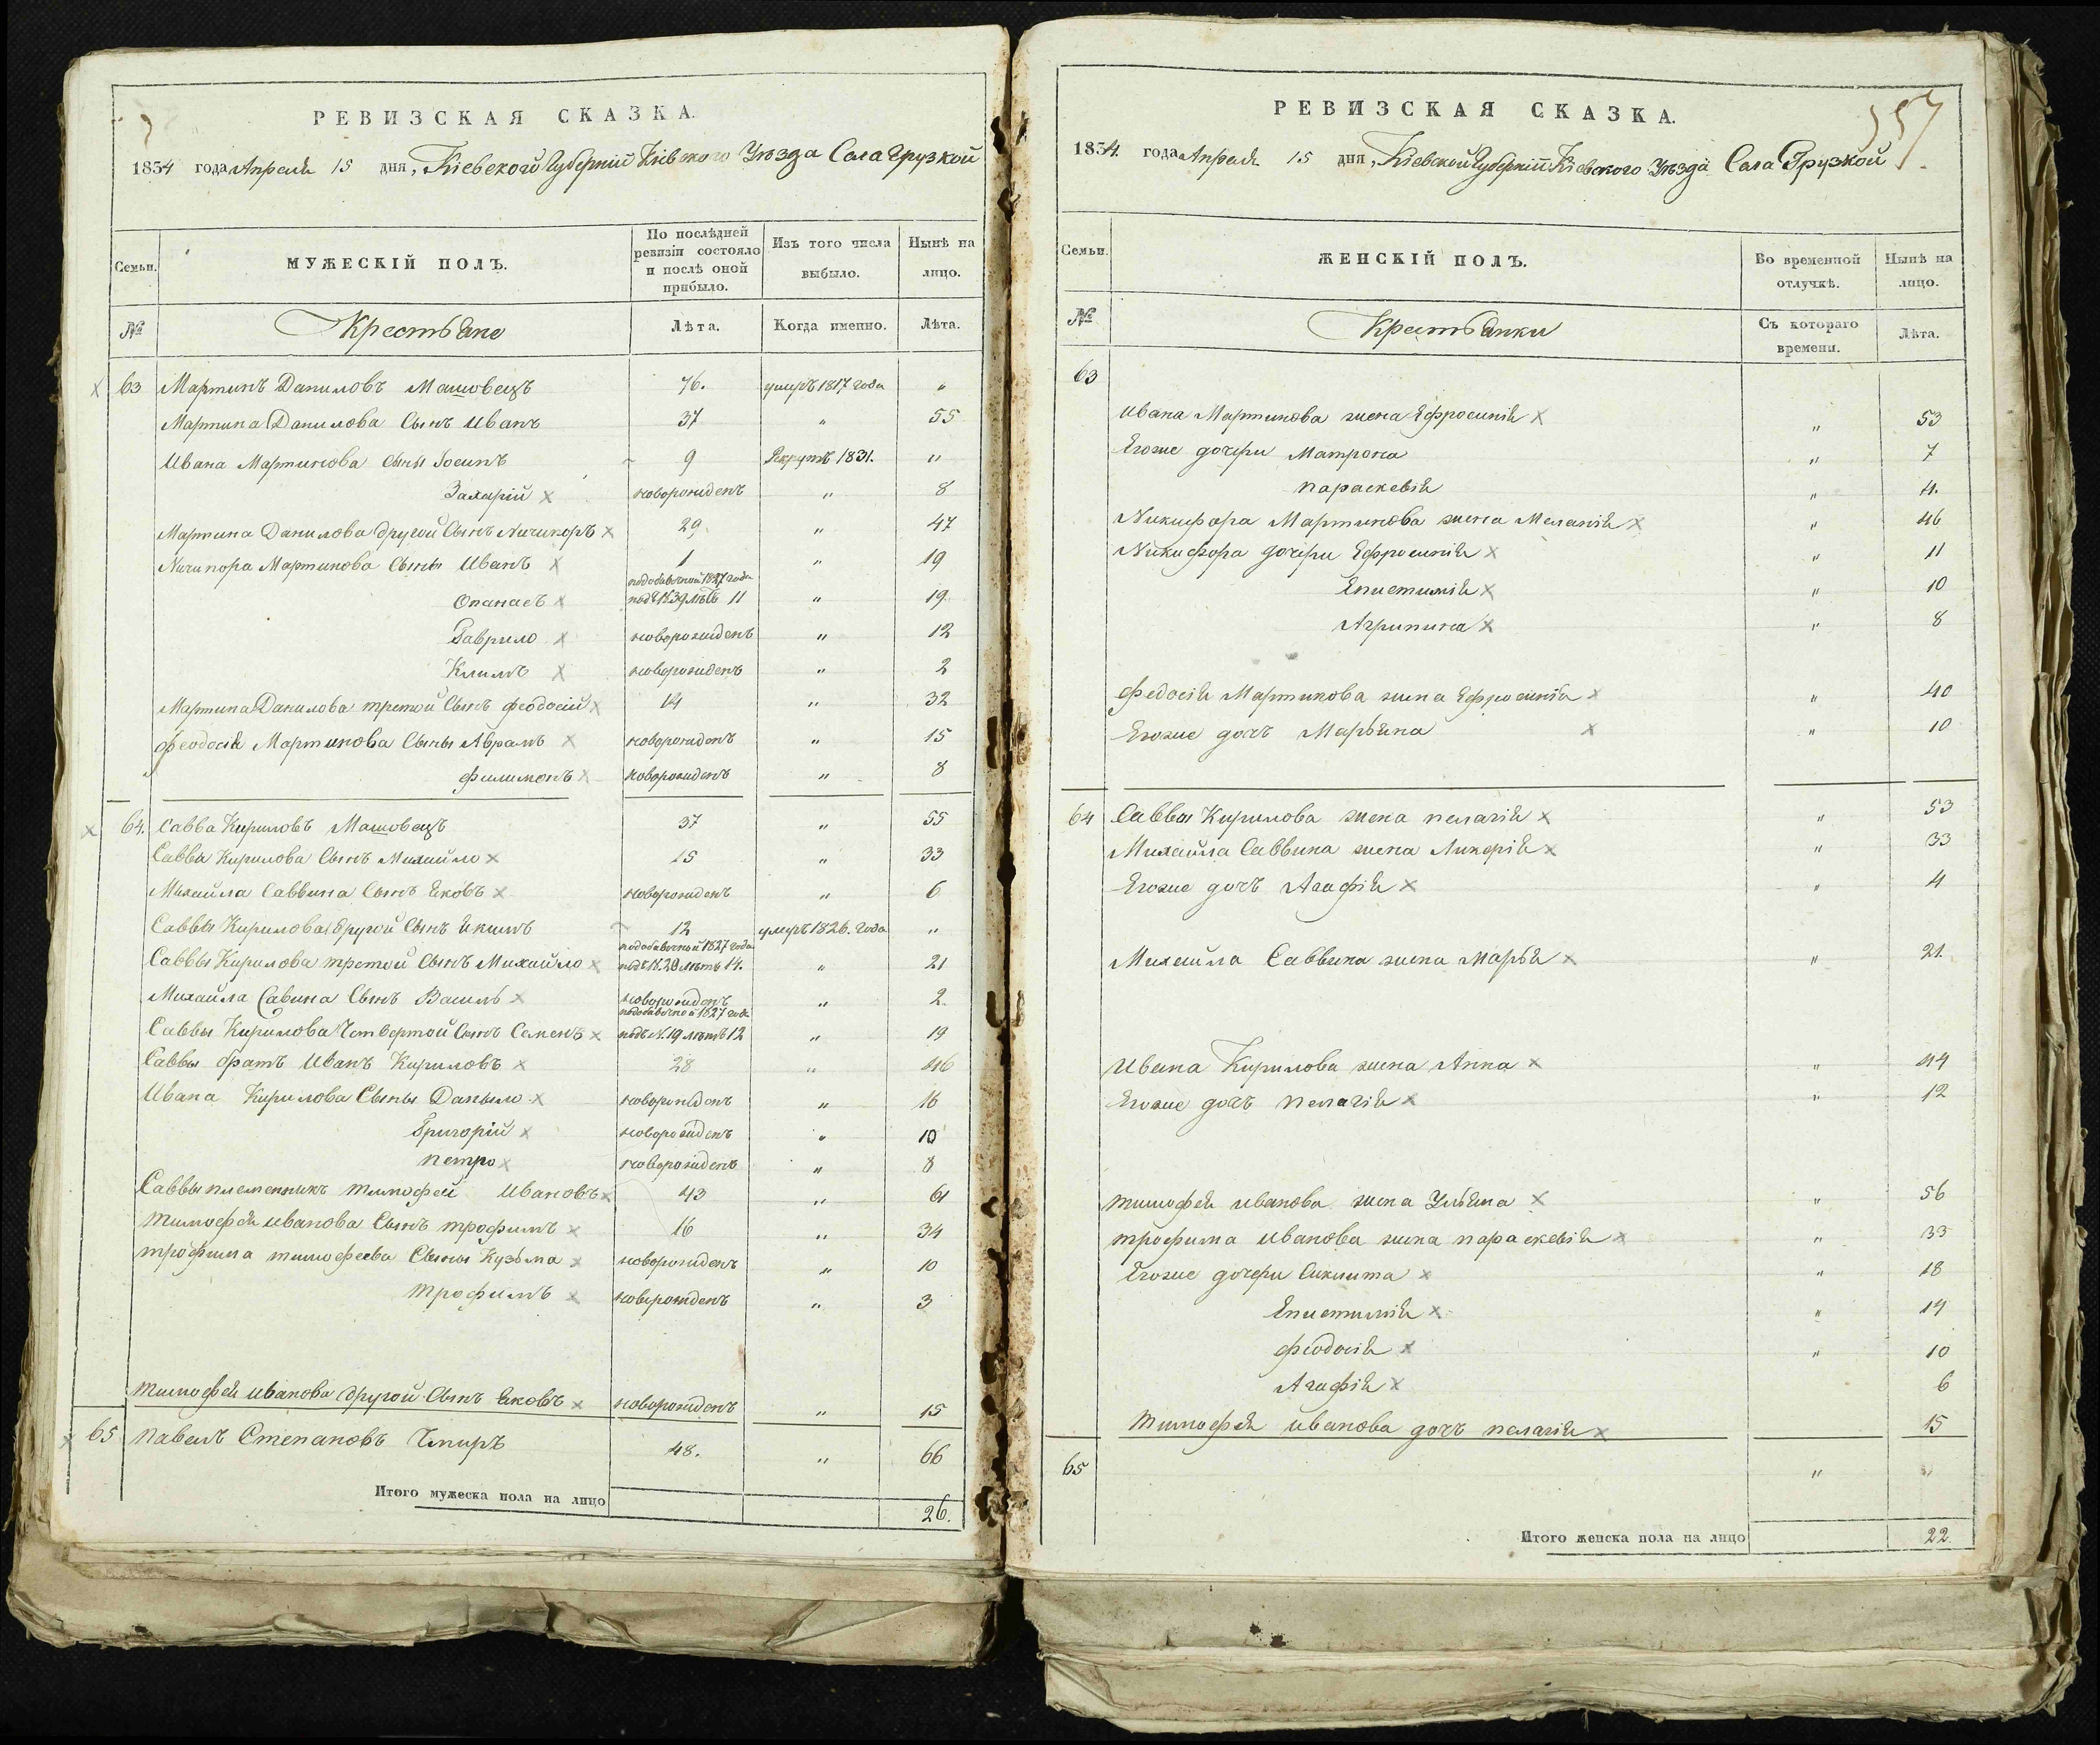 РЕВИЗСКАЯ СКАЗКА.
1834 года Апреля 15 дня, Кіевской Губерніи Кіевского Уѣзда Села Грузкой
Семьи.
МУЖЕСКІЙ ПОЛЪ.
По послѣдней ревизіи состояло и послѣ оной прибыло.
Изъ того числа выбыло.
Нынѣ на лицо.
№ Крестьяне Лѣта. Когда именно. Лѣта.
63 Мартинъ Даниловъ Машовецъ 76. умеръ 1817 года "
Мартина Данилова Сынъ Иванъ 37 " 55
Ивана Мартинова Сыны Іосипъ 9 Рекрутъ 1831. "
Захарій новорожденъ " 8
Мартина Данилова другой Сынъ Ничипоръ 29 " 47
Ничипора Мартинова Сыны Иванъ 1 " 19
подобавочной 1827 года
Опанасъ подъ №39 лѣтъ 11 " 19
Гаврило новорожденъ " 12
Климъ новорожденъ " 2
Мартина Данилова третой Сынъ Феодосій 14 " 32
Феодосія Мартинова Сыны Аврамъ новорожденъ " 15
Филимонъ новорожденъ " 8
64. Савва Кириловъ Машовецъ 37 " 55
Саввы Кирилова Сынъ Михайло 15 " 33
Михайла Саввина Сынъ Яковъ новорожденъ " 6
Саввы Кирилова другой Сынъ Якимъ 12 умеръ 1826. года "
подобавочной 1827 года
Саввы Кирилова третой Сынъ Михайло подъ №20 лѣтъ 14. " 21
Михайла Савина Сынъ Василь новорожденъ " 2
подобавочной 1827 года
Саввы Кирилова Четвертой Сынъ Семенъ подъ №.19 лѣтъ 12 " 19
Саввы братъ Иванъ Кириловъ 28 " 46
Ивана Кирилова Сыны Данило новорожденъ " 16
Григорій новорожденъ " 10
Петро новорожденъ " 8
Саввы племенникъ Тимофей Ивановъ 43 " 61
Тимофея Иванова Сынъ Трофимъ 16 " 34
Трофима Тимофеева Сыны Кузьма новорожденъ " 10
Трофимъ новорожденъ " 3
Тимофея Иванова другой Сынъ Яковъ новорожденъ " 15
65 Павелъ Степановъ 48. " 66
Итого мужеска пола на лицо 26.
РЕВИЗСКАЯ СКАЗКА.
1834. года Апреля 15 дня, Кіевской Губерніи Кіевского Уѣзда Села Грузкой
Семьи.
ЖЕНСКІЙ ПОЛЪ.
Во временной отлучкѣ.
Нынѣ на лицо.
№ Крестьянки Съ котораго времени. Лѣта.
63
Ивана Мартинова жена Ефросинія " 53
Егоже дочери Матрона " 7
Параскевія " 4.
Никифора Мартинова жена Меланія " 46
Никифора дочери Ефросинія " 11
Епистимія " 10
Агрипина " 8
Федосія Мартинова жена Ефросинія " 40
Егоже дочъ Марьяна " 10
64 Саввы Кирилова жена Пелагія " 53
Михайла Саввина жена Ликерія " 33
Егоже дочъ Агафія " 4
Михайла Саввина жена Марья " 21.
Ивана Кирилова жена Анна " 44
Егоже дочъ Пелагія " 12
Тимофея Иванова жена Ульяна " 56
Трофима Иванова жена Параскевія " 33
Егоже дочери Сиклита " 18
Епистимія " 14
Феодосія " 10
Агафія 6
Тимофея Иванова дочъ Пелагія 15
65 " "
Итого женска пола на лицо 22